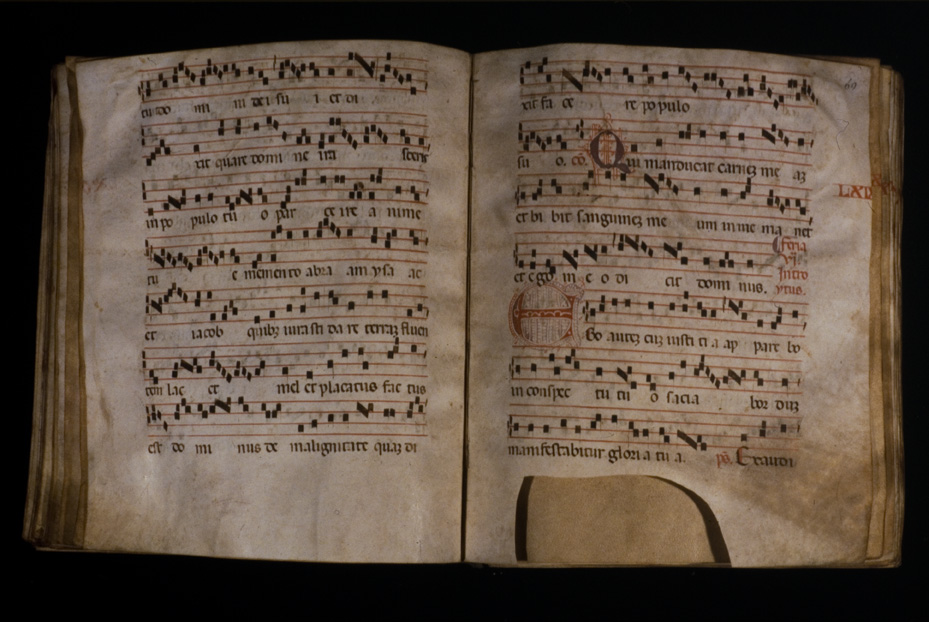 tu do mi ni de i su i et di
xit quare domi ne ira sceris
in po pulo tu o par ce ire a nime
tu e memento abra am ysa ac
et iacob quibz iurasti da re terraz fluen
tem lac et mel et placatus fac tus
est do mi nus de malignitate quaz di
60
xit fa ce re populo
su o. cō. Qui manducat carnez me az
et bi bit sanguinez me um in me ma net
et ego in e o di cit domi nus.
feria
vi.
Intro
ytus.
Ego autez cuz iusti ti a ap pare bo
in conspec tu tu o sacia bor duz
manifestabitur glori a tu a. ps. Exaudi